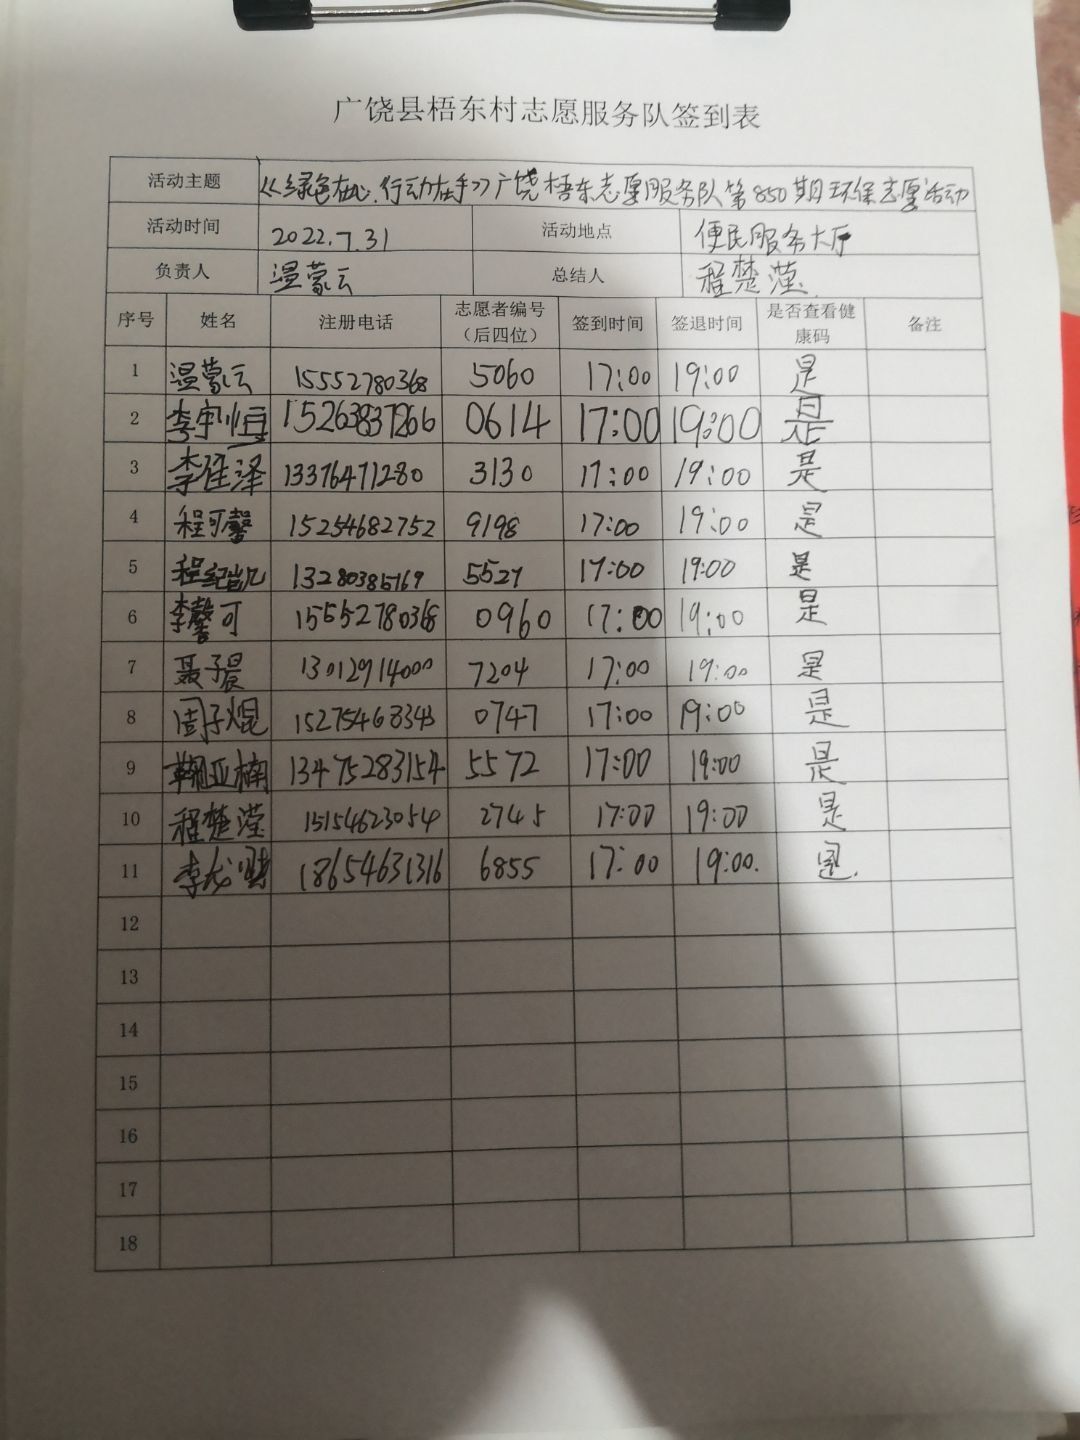 广饶县梧东村志愿服务队签到表
活动主题 《绿色在心.行动在手》广饶梧东志愿服务队第850期环保志愿活动
活动时间 2022.7.31 活动地点 便民服务大厅
负责人 温蒙云 总结人 程楚滢
序号 姓名 注册电话 志愿者编号（后四位） 签到时间 签退时间 是否查看健康码 备注
1 温蒙云 15552780368 5060 17:00 19:00 是
2 李宇恒 15263837266 0614 17:00 19:00 是
3 李佳泽 13376471280 3130 17:00 19:00 是
4 程可馨 15254682752 9198 17:00 19:00 是
5 程纪凯 13280385769 5527 17:00 19:00 是
6 李馨可 15552780368 0960 17:00 19:00 是
7 聂子晨 13012914000 7204 17:00 19:00 是
8 周子焜 15275468343 0747 17:00 19:00 是
9 亚楠 13475283154 5572 17:00 19:00 是
10 程楚滢 15154623054 2745 17:00 19:00 是
11 李龙 18654631316 6855 17:00 19:00. 是.
12
13
14
15
16
17
18